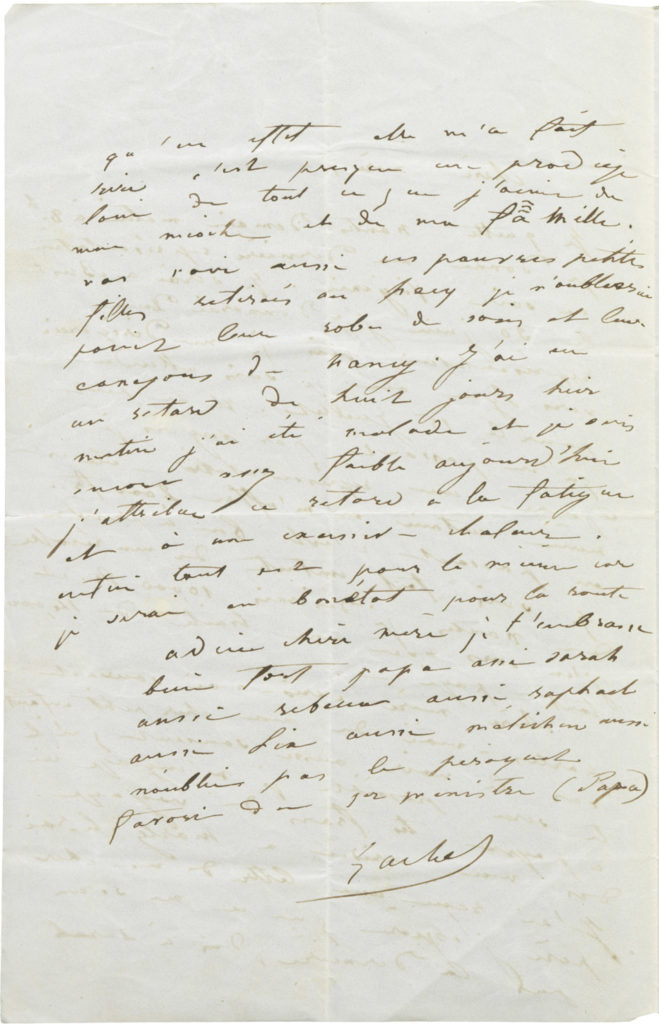 qu'en effet elle m'a fait
c'est presque un prodige
loin de tout ce que j'aime de
mon mioche et de ma faMille.
aussi ces pauvres petites
filles retirés au pecq je n'oublierai
point leur robe de soies et leur
caneçons de nancy. J'ai eu
un retard de huit jours hier
matin j'ai été malade et je suis
encore assez faible aujourd'hui
j'attribue ce retard a la fatigue
et à une excessive chaleur.
enfin tout est pour le mieux car
je serai en bonétat pour la route
adieu chere mère je t'embrasse
bien fort papa ausi sarah
aussi rebecca aussi raphael
aussi Lia aussi aussi
n'oublie pas le peroquet
favori du 1er ministre (Papa)
Rachel